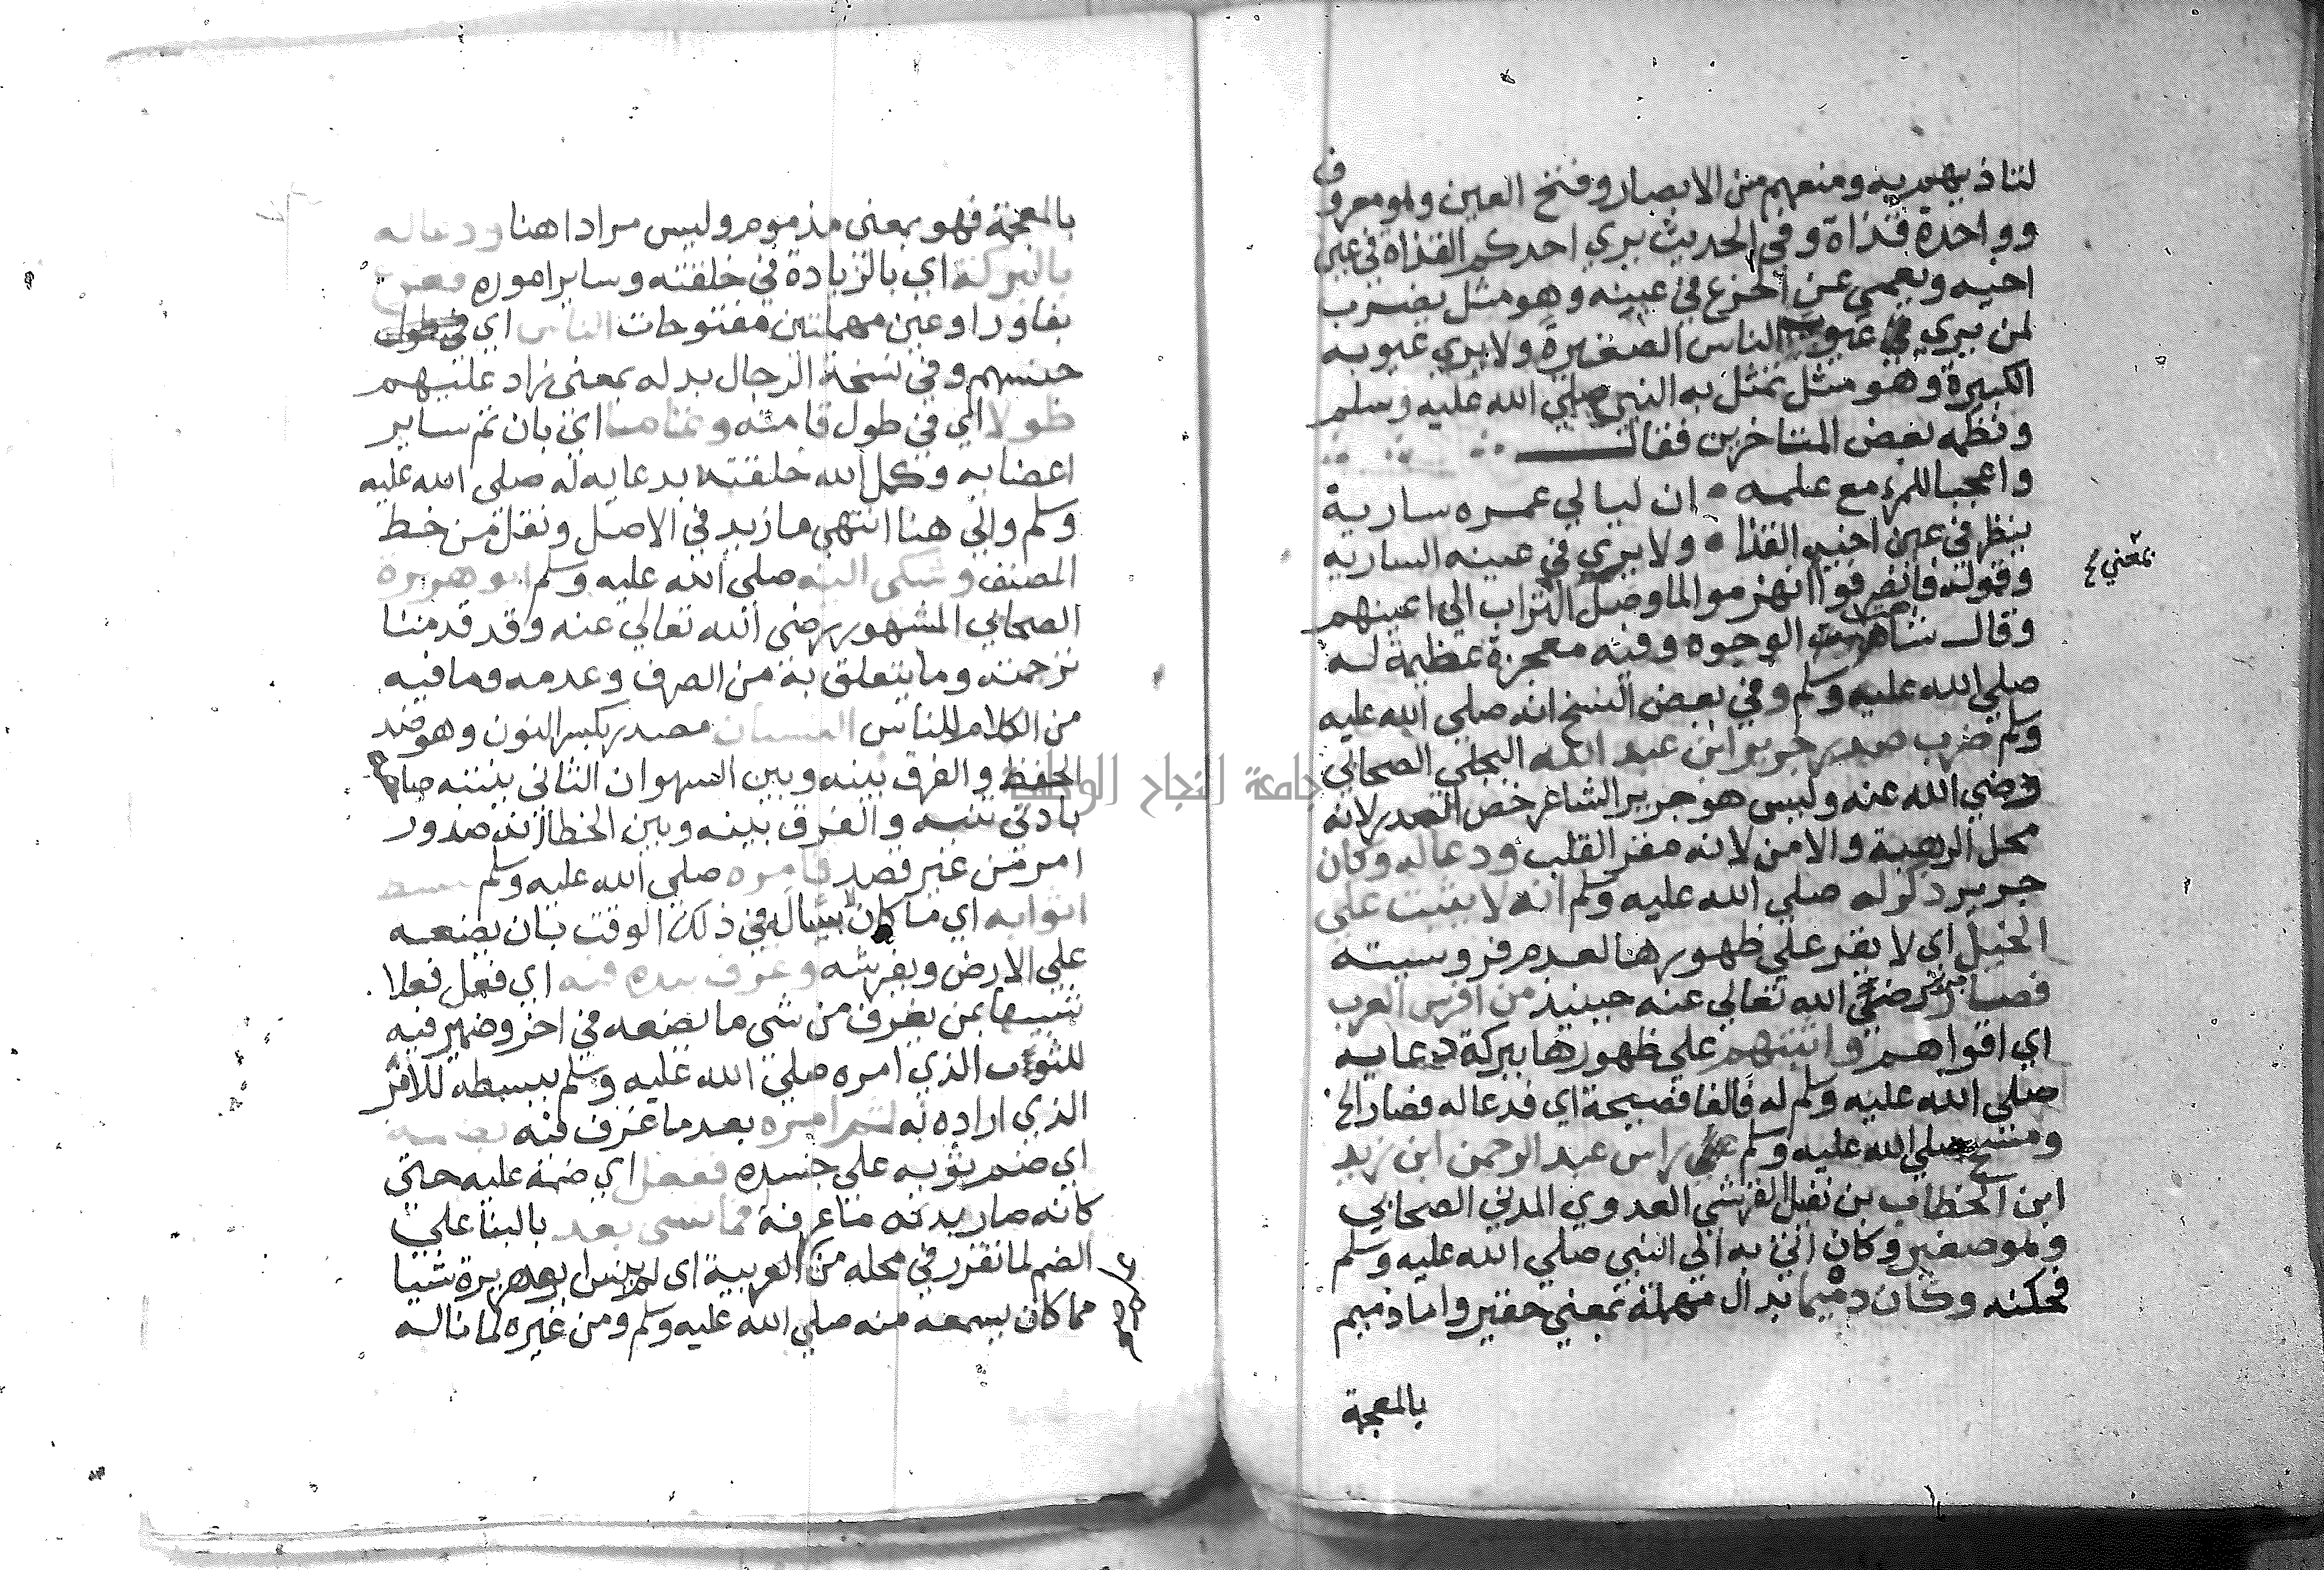 لتاذيهم به ومنعهم من الابصار وفتح العين وهو معروف
وواحدة قذاة وفي الحديث يري احدكم القذاة في عين
اخيه ويعمي عن الجزع في عينه وهو مثل يضرب
لمن يري عيوب الناس الصغيرة ولا يري عيوبه
الكبيرة وهو مثل تمثل به النبي صلي الله عليه وسلم
ونظمه بعض المتاخرين فقال
واعجبا للمرء مع علمه ان ليالي عمره سارية
ينظر في عين اخيه القذا ولا يري في عينه الساريه
وقوله فانصرفوا انهزموا لما وصل التراب الي اعينهم
وقال شاهت الوجوه وفيه معجزة عظيمة له
بمعني
صلي الله عليه وسلم وفي بعض النسخ انه صلي الله عليه
وسلم ضرب صدر جرير ابن عبد الله البجلي الصحابي
رضي الله عنه وليس هو جرير الشاعر خص الصدر لانه
محل الرهبة والامن لانه مقر القلب ودعا له وكان
جرير ذكر له صلي الله عليه وسلم انه لا يثبت علي
الخيل اي لا يقد علي ظهورها لعدم فروسيته
فصار رضي الله تعالي عنه حينيذ من افرس العرب
اي اقواهم واثبتهم علي ظهورها ببركة دعايه
صلي الله عليه وسلم له فالفا فصيحة اي فدعا له فصار الخ
ومسح صلي الله عليه وسلم راس عبد الرحمن ابن زيد
ابن الخطاب بن نفيل القرشي العدوي المدني الصحابي
وهو صغير وكان اتي به الي النبي صلي الله عليه وسلم
فحكنه وكان دميما بدال مهملة بمعني حقير واما ذميم
بالمعجمة
بالمعجمة فهو بمعني مذموم وليس مرادا هنا ودعا له
بالبركة اي بالزيادة في خلقته وساير اموره ففرع
بفا ورا وعين مهملتين مفتوحات الناس اي
جنسهم وفي نسخة الرجال بدله بمعني زاد عليهم
طولا اي في طول قامته وتماما اي بان تم ساير
اعضايه وكمل الله خلقته بدعايه له صلي الله عليه
وسلم والي هنا انتهي ما زيد في الاصل ونقل من خط
المصنف وشكي اليه صلي الله عليه وسلم ابو هريرة
الصحابي المشهور رضي الله تعالي عنه وقد قدمنا
ترجمته وما يتعلق به من الصرف وعدمه وما فيه
من الكلام للناس النسيان مصدر بكسر النون وهو ضد
الحفظ والفرق بينه وبين السهو ان الثاني يتنبه
بادني تنبيه والفرق بينه وبين الخطا صدور
امر من غير قصد فامره صلي الله عليه وسلم ببسط
ثوابه اي ما كان في ذلك الوقت بان يضعه
علي الارض ويفرشه وغرف بيده فيه اي فعل فعلا
تشبيها بمن يغرف من شي ما يضعه في اخر وضمير فيه
للثوب الذي امره صلي الله عليه وسلم ببسطه للامر
الذي اراده به ثم امره بعد ما غرف فيه بضمه
اي ضم ثوبه علي جسده ففعل اي ضمه عليه حتي
كانه صار بدنه ما غرفه فما نسي بعد بالبنا علي
الضم لما تقرر في محله من العربية اي لم ينس ابو هريرة شيا
مما كان يسمعه منه صلي الله عليه وسلم ومن غيره لما ناله
جامعة النجاح الوطنية